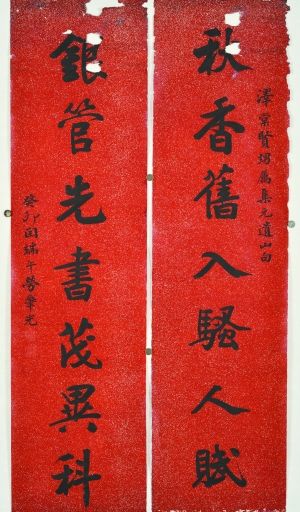 秋香舊入騷人賦
澤賢甥屬集元遺山句
銀管先書茂異科
癸卯閏端午勞肇光